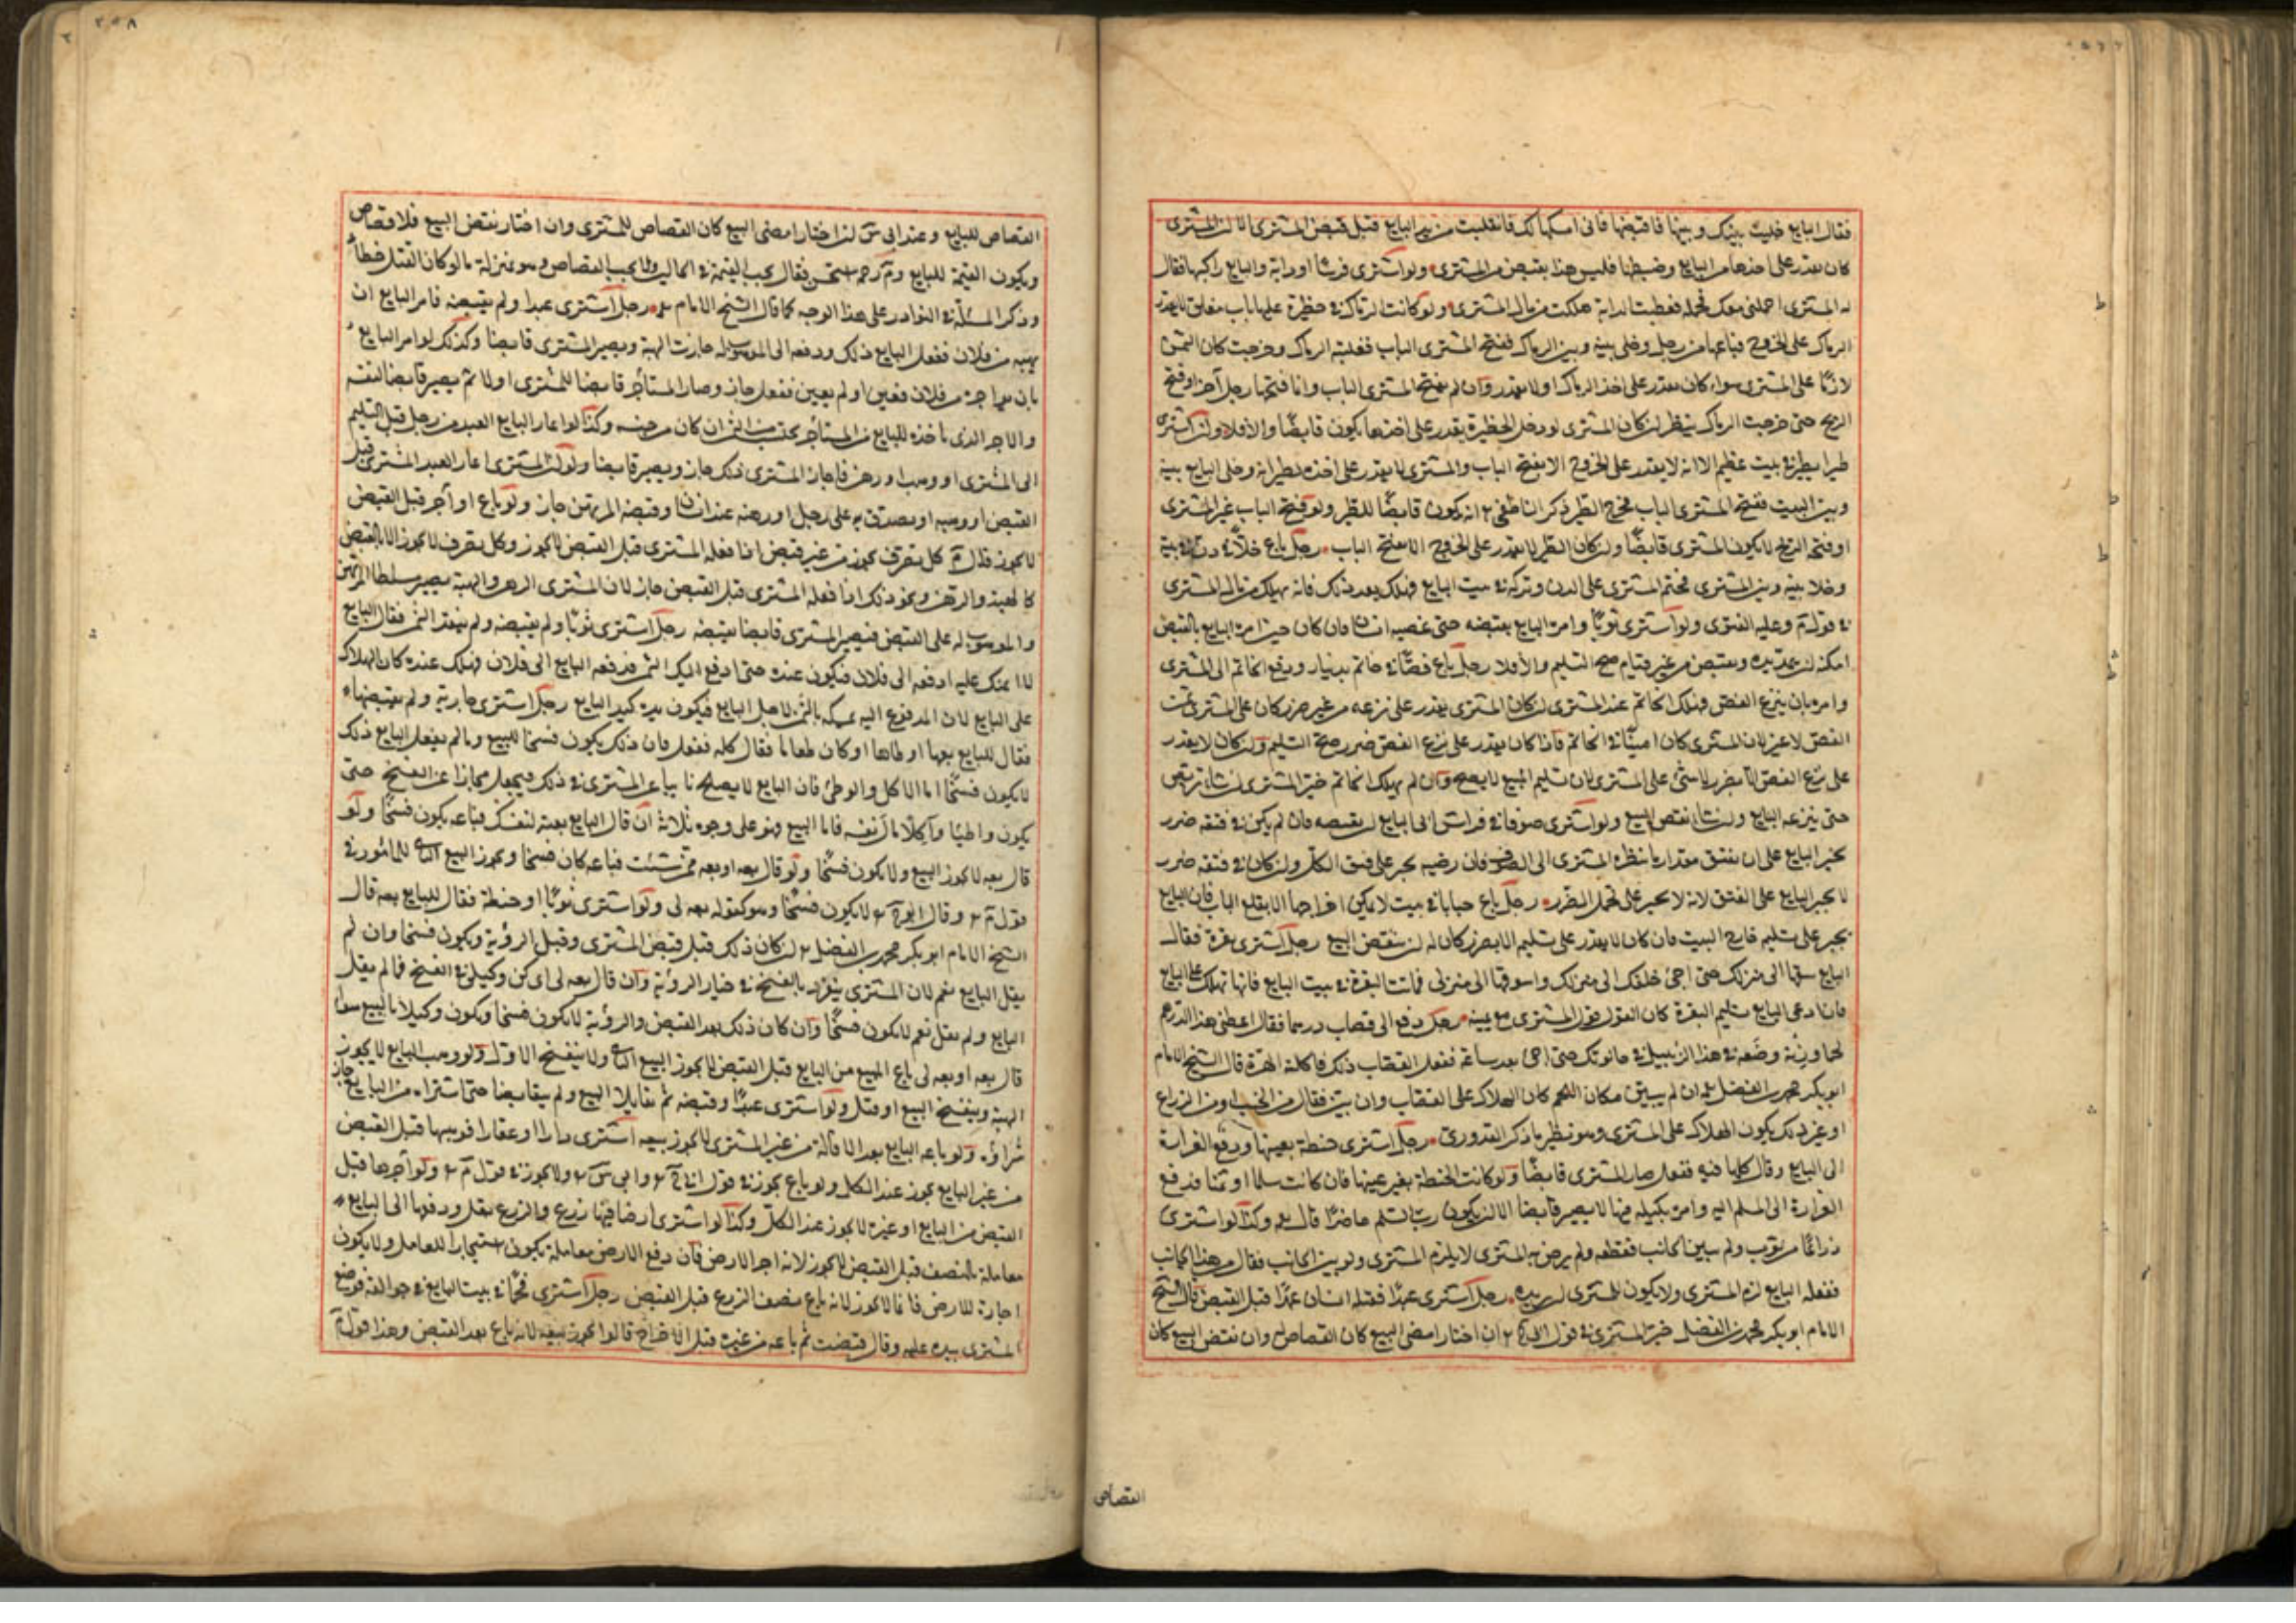 فقال البايع خليت بينك وبينها فاقبضها فانى امسكها لك فانفلتت من يد البايع قبل قبض المشترى الا ان المشترى
كان يقدر على اخذها من البايع وضبطها فليس هذا بقبض من المشترى ولو اشترى فرسا او دابة والبايع راكبها فقال
له المشترى احملنى معك فحمله فعطبت الدابة هلكت من مال المشترى ولو كانت الرماك فى حظيرة عليها باب مغلق لا يقدر
الرماك على الخروج فباعها من رجل وخلى بينه وبين الرماك ففتح المشترى الباب فغلبته الرماك وخرجت كان الثمن
لازما على المشترى سواء كان يقدر على اخذ الرماك او لا يقدر وان لم يفتح المشترى الباب وانما فتحها رجل آخر او فتح
الريح حتى خرجت الرماك ينظر ان كان المشترى لو دخل الحظيرة يقدر على اخذها يكون قابضا والا فلا ولو اشترى
طيرا يطير فى بيت عظيم الا انه لا يقدر على الخروج الا بفتح الباب والمشترى لا يقدر على اخذه لطيرانه وخلى البايع بينه
وبين البيت ففتح المشترى الباب فخرج الطير ذكر الناطفى انه يكون قابضا للطير ولو فتح الباب غير المشترى
او فتحه الريح لا يكون المشترى قابضا وان كان الطير لا يقدر على الخروج الا بفتح الباب رجل باع خلا فى دن فى بيته
وخلا بينه وبين المشترى فختم المشترى على الدن وتركه فى بيت البايع فهلك بعد ذلك فانه يهلك من مال المشترى
فى قول م وعليه الفتوى ولو اشترى ثوبا وامره البايع بقبضه حتى غصبه انسان فان كان حين امره البايع بالقبض
امكنه ان يمد يده ويقبض من غير قيام صح التسليم والا فلا رجل باع فصا فى خاتم بدينار ودفع الخاتم الى المشترى
وامره بان ينزع الفص فهلك الخاتم عند المشترى ان كان المشترى يقدر على نزعه من غير ضرر كان على المشترى ثمن
الفص لا غير لان المشترى كان امينا فى الخاتم فاذا كان يقدر على نزع الفص من غير ضرر صح التسليم وان كان لا يقدر
على نزع الفص الا بضرر لا شئ على المشترى لان تسليم المبيع لا يصح وان لم يهلك الخاتم خير المشترى ان شاء تربص
حتى ينزعه البايع وان شاء نقض البيع ولو اشترى صوفا فى فراش ابى البايع ان يفتقه فان لم يكن فى فتقه ضرر
يجبر البايع على ان يفتق مقدار ما ينظره المشترى الى الصوف فان رضيه يجبر على فتق الكل وان كان فى فتقه ضرر
لا يجبر البايع على الفتق لانه لا يجبر على تحمل الضرر رجل باع حبابا فى بيت لا يمكن اخراجها الا بقلع الباب فان البايع
يجبر على تسليم خارج البيت فان كان لا يقدر على تسليم الا بضرر كان له ان ينقض البيع رجل اشترى بقرة فقال
البايع سقها الى منزلك حتى اجئ خلفك الى منزلك واسوقها الى منزلى فماتت البقرة فى بيت البايع فانها تهلك على البايع
فان ادعى البايع تسليم البقرة كان القول قول المشترى مع يمينه رجل دفع الى قصاب درهما فقال اعطنى هذا الدرهم
لحما وزنه وضعه فى هذا الزنبيل فى حانوتك حتى اجئ بعد ساعة ففعل القصاب ذلك فاكلته الهرة قال الشيخ الامام
ابو بكر محمد بن الفضل ان لم يبين مكان اللحم كان الهلاك على القصاب وان بين فقال من الجنب او من الذراع
او غير ذلك يكون الهلاك على المشترى وهو نظير ما ذكر القدورى رجل اشترى حنطة بعينها ودفع الغرارة
الى البايع وقال كلها فيه ففعل صار المشترى قابضا ولو كانت الحنطة بغير عينها فان كانت سلما او ثمنا فدفع
الغرارة الى المسلم اليه وامره بكيله فيها لا يصير قابضا الا ان يكون رب السلم حاضرا قال وكذا لو اشترى
ذراعا من ثوب ولم يبين الجانب فقطعه ولم يرض به المشترى لا يلزم المشترى ولو بين الجانب فقال من هذا الجانب
ففعله البايع لزم المشترى ولا يكون للمشترى ان يرده رجل اشترى عبدا فقتله انسان عمدا قبل القبض قال الشيخ
الامام ابو بكر محمد بن الفضل خير المشترى فى قول ان اختار امضى البيع كان القصاص له وان نقض البيع كان
القصاص
القصاص للبايع وعند ابى س ان اختار امضى البيع كان القصاص للمشترى وان اختار نقض البيع فلا قصاص
ويكون القيمة للبايع وم رحمه استحسن فقال يجب القيمة فى الحالين ولا يجب القصاص وهو بمنزلة ما لو كان القتل خطأ
وذكر المسئلة فى النوادر على هذا الوجه كما قال الشيخ الامام رجل اشترى عبدا ولم يقبضه فامر البايع ان
يهبه من فلان ففعل البايع ذلك ودفعه الى الموهوب له جازت الهبة ويصير المشترى قابضا وكذلك لو امر البايع
بان يؤاجره من فلان فعين او لم يعين ففعل جاز وصار المستأجر قابضا للمشترى اولا ثم يصير قابضا لنفسه
والاجر الذى ياخذه البايع من المستأجر يحتسب من الثمن ان كان من جنسه وكذا لو اعار البايع العبد من رجل قبل التسليم
الى المشترى او وهب او رهن فاجاز المشترى ذلك جاز ويصير قابضا ولو ان المشترى اعار العبد المشترى قبل
القبض او وهبه او تصدق به على رجل او رهنه عند انسان وقبضه المرتهن جاز ولو باع او آجر قبل القبض
لا يجوز قال م كل تصرف يجوز من غير قبض اذا فعله المشترى قبل القبض لا يجوز وكل تصرف لا يجوز الا بالقبض
كالهبة والرهن ونحو ذلك اذا فعله المشترى قبل القبض جاز لان المشترى الرهن والهبة يصير مسلطا المرتهن
والموهوب له على القبض فيصير المشترى قابضا بقبضه رجل اشترى ثوبا ولم يقبضه ولم ينقد الثمن فقال البايع
لا ائتمنك عليه ادفعه الى فلان فيكون عنده حتى ادفع اليك الثمن فدفعه البايع الى فلان فهلك عنده كان الهلاك
على البايع لان المدفوع اليه يمسكه بالثمن لاجل البايع فيكون يده كيد البايع رجل اشترى جارية ولم يقبضها
فقال للبايع بعها او طاها او كان طعاما فقال كله ففعل فان ذلك يكون فسخا للبيع وما لم يفعل البايع ذلك
لا يكون فسخا اما الاكل والوطئ فان البايع لا يصلح نايبا عن المشترى فى ذلك فيجعل مجازا عن الفسخ حتى
يكون واطيا وآكلا مال نفسه فاما البيع فهو على وجوه ثلاثة ان قال البايع بعته لنفسك فباعه يكون فسخا ولو
قال بعه لا يجوز البيع ولا يكون فسخا ولو قال بعه او بعه ممن شئت فباعه كان فسخا ويجوز البيع الثانى للمأمور فى
قول م وقال لا يكون فسخا وهو كقوله بعه لى ولو اشترى ثوبا او حنطة فقال للبايع بعه قال
الشيخ الامام ابو بكر محمد بن الفضل ان كان ذلك قبل قبض المشترى وقبل الرؤية ويكون فسخا وان لم
يقل البايع نعم لان المشترى ينفرد بالفسخ فى خيار الرؤية وان قال بعه لى اى كن وكيلى فى الفسخ فما لم يقبل
البايع ولم يقل نعم لا يكون فسخا وان كان ذلك بعد القبض والرؤية لا يكون فسخا ويكون وكيلا بالبيع سواء
قال بعه او بعه لى باع المبيع من البايع قبل القبض لا يجوز البيع الثانى ولا ينفسخ الاول ولو وهب البايع لا يجوز
الهبة وينفسخ البيع او قبل ولو اشترى عبدا وقبضه ثم تقايلا البيع ولم يتقابضا حتى اشتراه من البايع جاز
شراؤه ولو باعه البايع بعد الاقالة من غير المشترى لا يجوز بيعه اشترى دارا او عقارا فوهبها قبل القبض
من غير البايع يجوز عند الكل ولو باع يجوز فى قول ح وابى س ولا يجوز فى قول م ولو آجرها قبل
القبض من البايع او غيره لا يجوز عند الكل وكذا لو اشترى ارضا فيها زرع والزرع بقل ودفعها الى البايع
معاملة بالنصف قبل القبض لا يجوز لانه اجر الارض فان دفع الارض معاملة يكون استيجارا للعامل ولا يكون
اجارة للارض فانما لا يجوز لانه باع نصف الزرع قبل القبض رجل اشترى فى بيت البايع فى جوالقه فوضع
المشترى يده عليه وقال قبضت ثم باعه من غيره قبل الاخراج قالوا يجوز بيعه لانه باع بعد القبض وهذا قول م